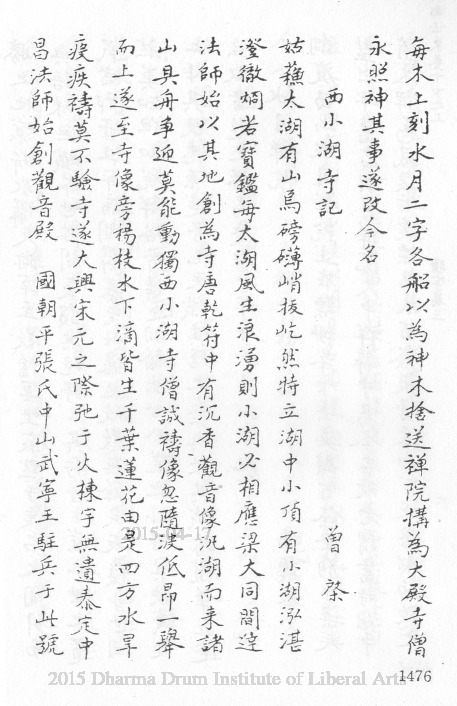 每木上刻水月二字各船以為神木捨送禅院搆為大殿寺僧
永照神其事遂改今名
西小湖寺記
曾棨
姑蘓太湖有山焉磅礡峭拔屹然特立湖中小頂有小湖泓湛
澄徹烱若寶鑑每太湖風生浪湧則小湖必相應梁大同間達
法師始以其地創為寺唐乾符中有沉香觀音像汎湖而来諸
山具舟事迎莫能動獨西小湖寺僧誠禱像忽隨波低昂一舉
而上遂至寺像旁楊枝水下滴皆生千葉蓮花由是四方水旱
疫疾禱莫不驗寺遂大興宋元之際弛于火棟宇無遺泰定中
昌法師始創觀音殿 國朝平張氏中山武寧王駐兵于此號
2015-04-17
1476
2015 Dharma Drum Institute of Liberal Arts